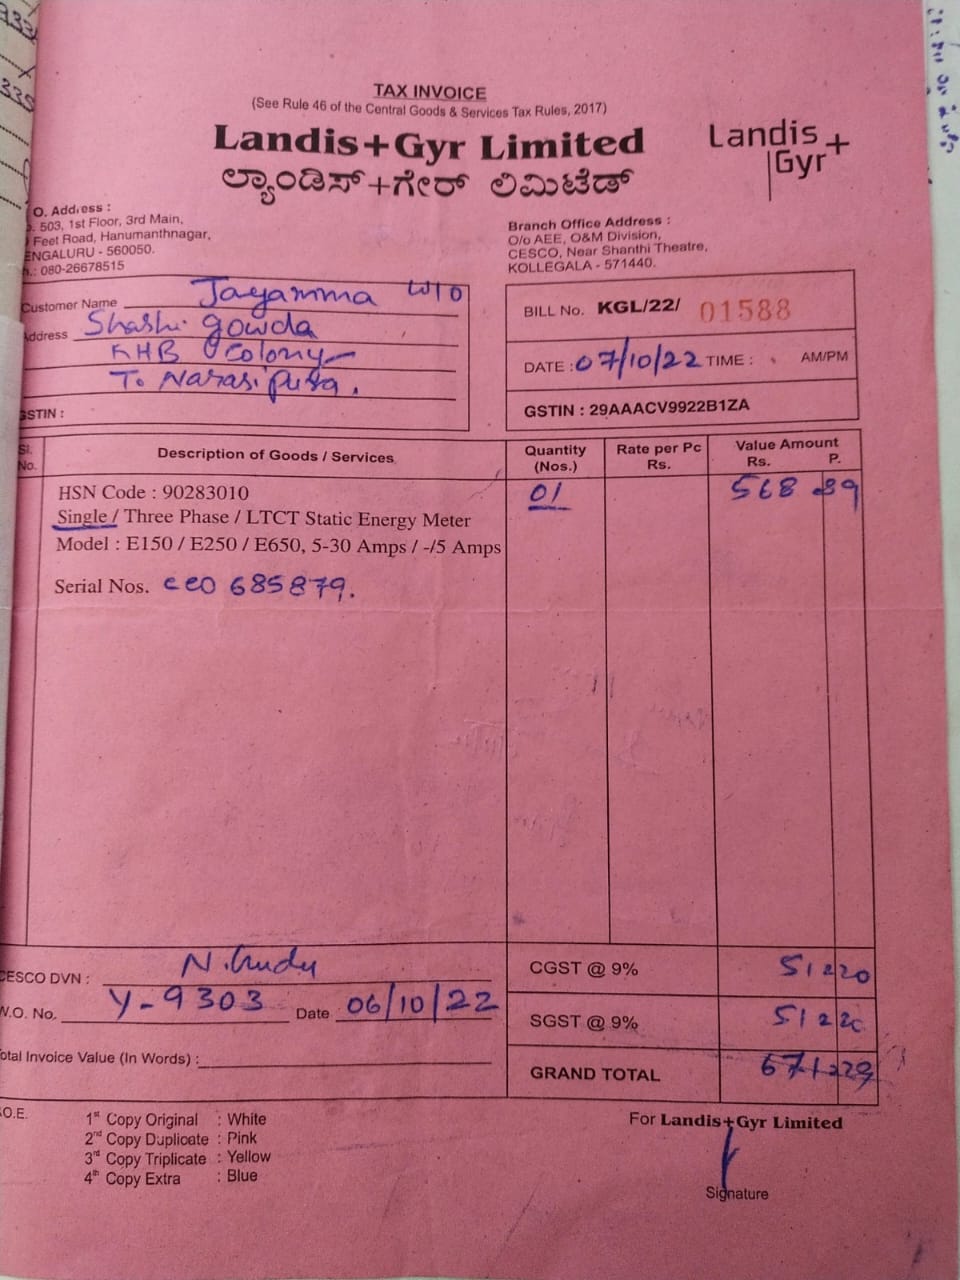 TAX INVOICE
(See Rule 46 of the Central Goods & Services Tax Rules, 2017)
Landis+Gyr Limited
ಲ್ಯಾಂಡಿಸ್+ಗೇರ್ ಲಿಮಿಟೆಡ್
Landis
Gyr+
O. Address :
503, 1st Floor, 3rd Main,
Feet Road, Hanumanthnagar,
ENGALURU - 560050.
.: 080-26678515
Branch Office Address :
O/o AEE, O&M Division,
CESCO, Near Shanthi Theatre,
KOLLEGALA - 571440.
Customer Name Jayamma W/O
Address Shashi gowda
KHB Colony
To Narasipura.
GSTIN :
BILL No. KGL/22/ 01588
DATE : 07/10/22 TIME : AM/PM
GSTIN : 29AAACV9922B1ZA
Sl. No. Description of Goods / Services Quantity (Nos.) Rate per Pc Rs. Value Amount Rs. P.
HSN Code : 90283010 01 568.89
Single / Three Phase / LTCT Static Energy Meter
Model : E150 / E250 / E650, 5-30 Amps / -/5 Amps
Serial Nos. ceo 685879.
CESCO DVN :
W.O. No. Y-9303 Date 06/10/22
Total Invoice Value (In Words) :
CGST @ 9% 51 20
SGST @ 9% 51 20
GRAND TOTAL 671 29
.O.E.
1st Copy Original : White
2nd Copy Duplicate : Pink
3rd Copy Triplicate : Yellow
4th Copy Extra : Blue
For Landis+Gyr Limited
Signature